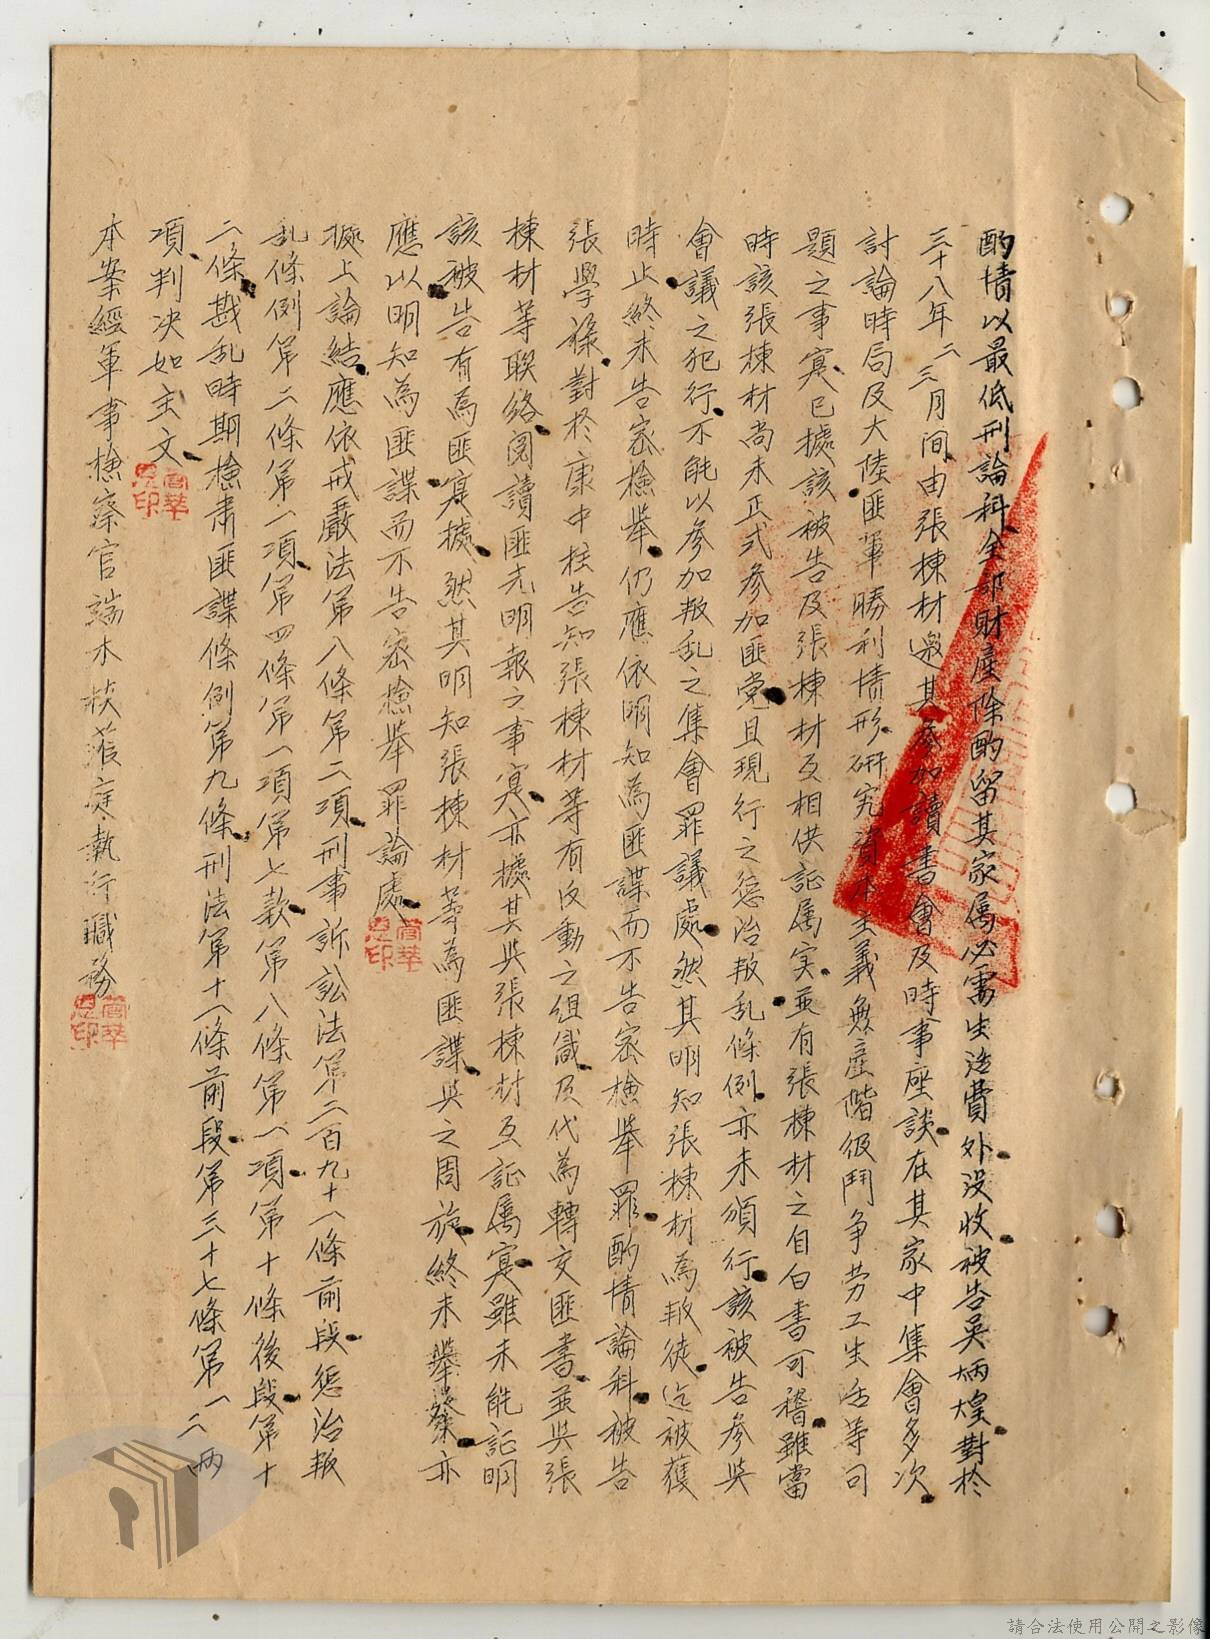 酌情以最低刑論科全部財產除酌留其家属必需生活費外没收被告吳炳煌對於
三十八年二三月间由張棟材邀其参加讀書會及時事座談在其家中集會多次
討論時局及大陸匪軍勝利情形研究資本主義無產階级鬥争劳工生活等问
題之事寔已據該被告及張棟材互相供証属实並有張棟材之自白書可稽雖當
時該張棟材尚未正式参加匪党且現行之懲治叛乱條例亦未頒行該被告参與
會議之犯行不能以参加叛乱之集會罪議處然其明知張棟材為叛徒迄被獲
時止終未告密檢舉仍應依明知為匪諜而不告密檢舉罪酌情論科被告
張學祿對於康中柱告知張棟材等有反動之組織及代為轉交匪書並與張
棟材等联络阅讀匪光明報之事寔亦據其與張棟材互証属寔雖未能証明
該被告有為匪寔據然其明知張棟材等為匪諜與之周旋終未舉發亦
應以明知為匪諜而不告密檢舉罪論處
據上論結應依戒嚴法第八條第二項刑事訴訟法第二百九十一條前段懲治叛
乱條例第二條第一項第四條第一項第七款第八條第一項第十條後段第十
二條戡乱時期檢肅匪諜條例第九條刑法第十一條前段第三十七條第一二兩
項判决如主文
本案經軍事檢察官端木棪蒞庭執行職務
請合法使用公開之影像